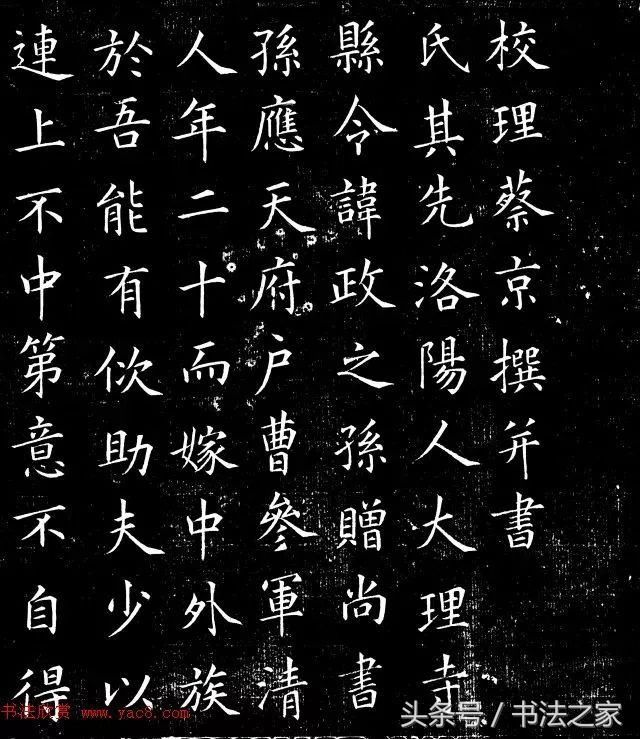 校理蔡京撰并書
氏其先洛陽人大理寺
縣令諱政之孫贈尚書
孫應天府户曹參軍清
人年二十而嫁中外族
於吾能有佽助夫少以
連上不中第意不自得
书法欣赏 www.yac8.com
头条号／书法之家